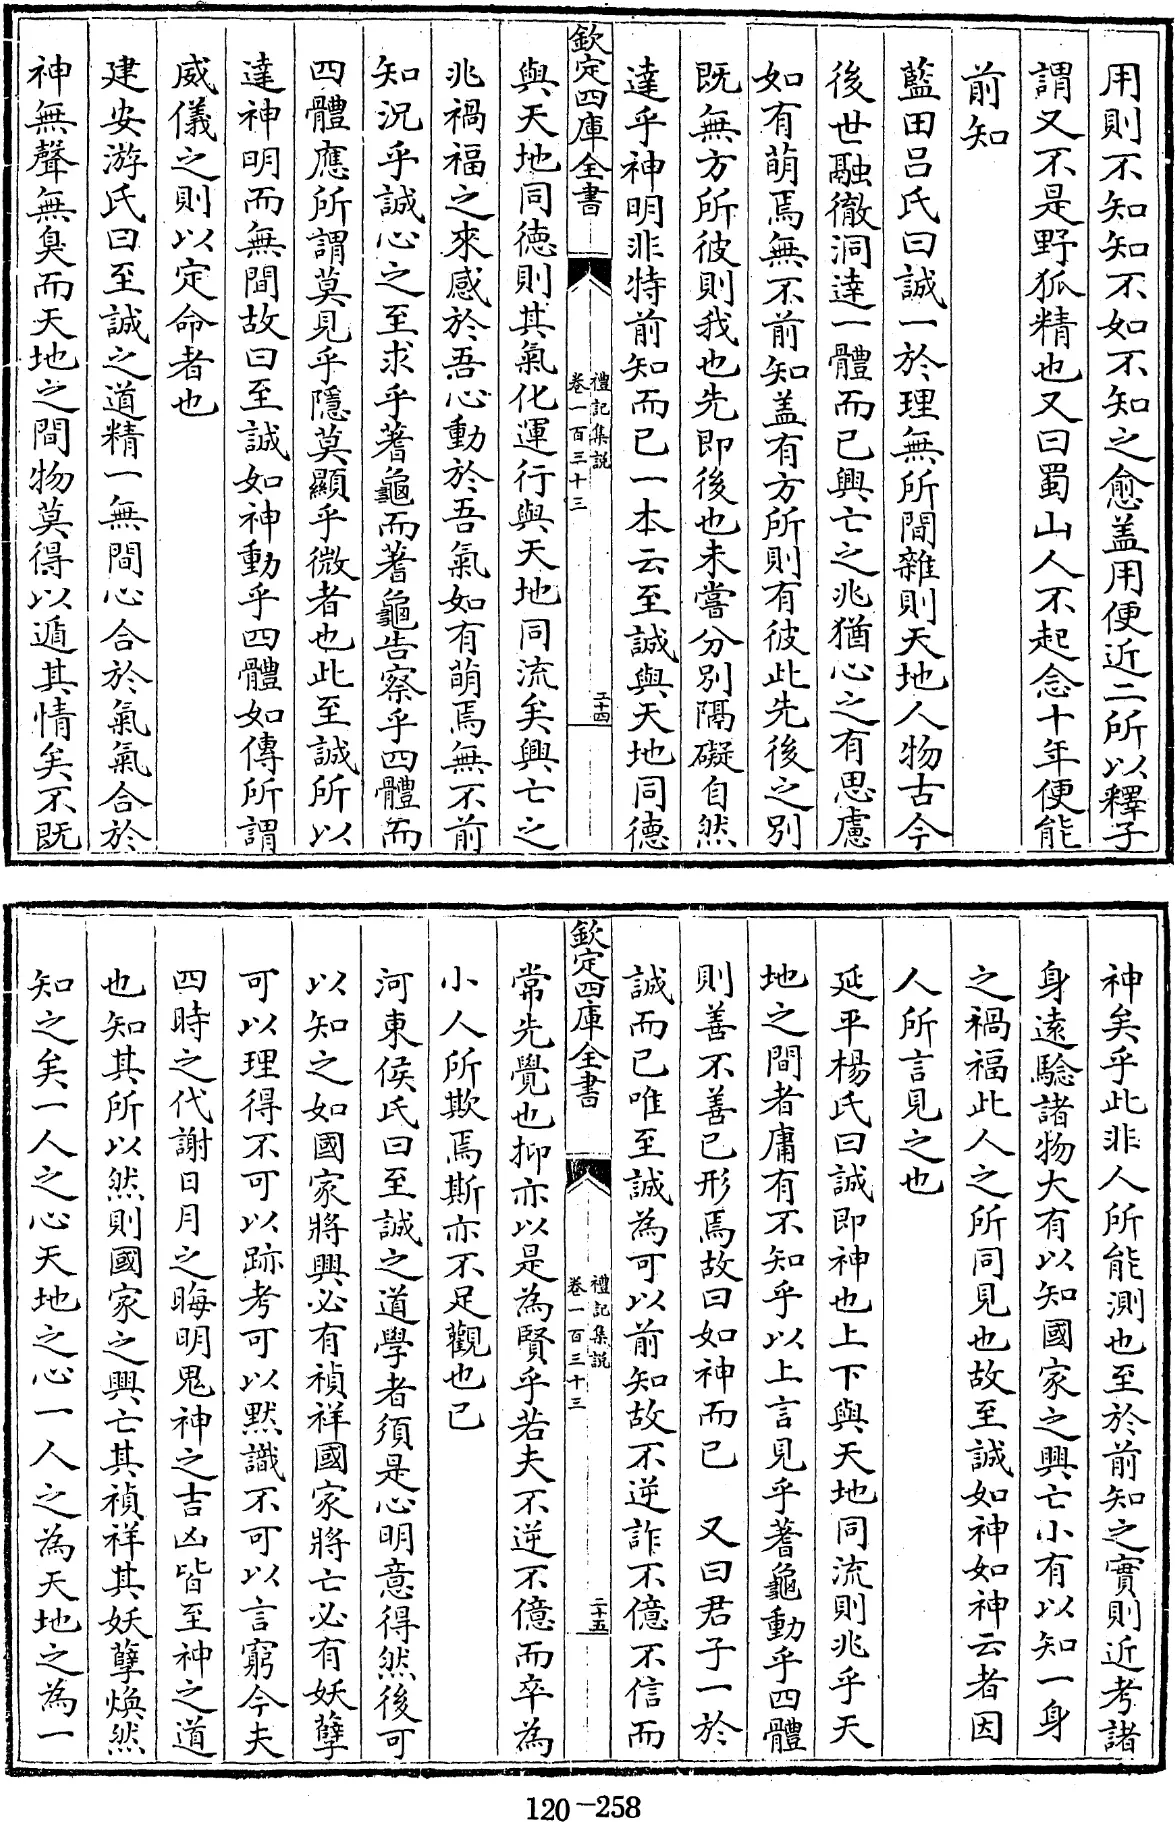 用則不知知不如不知之愈盖用便近二所以釋子
謂又不是野狐精也又曰蜀山人不起念十年便能
前知
藍田吕氏曰誠一於理無所間雜則天地人物古今
後世融徹洞達一體而已興亡之兆猶心之有思慮
如有萌焉無不前知盖有方所則有彼此先後之別
既無方所彼則我也先即後也未嘗分別隔礙自然
達乎神明非特前知而已一本云至誠與天地同德
欽定四庫全書
禮記集說
卷一百三十三
二十四
與天地同德則其氣化運行與天地同流矣興亡之
兆禍福之來感於吾心動於吾氣如有萌焉無不前
知況乎誠心之至求乎蓍龜而蓍龜告察乎四體而
四體應所謂莫見乎隱莫顯乎微者也此至誠所以
達神明而無間故曰至誠如神動乎四體如傳所謂
威儀之則以定命者也
建安游氏曰至誠之道精一無間心合於氣氣合於
神無聲無臭而天地之間物莫得以遁其情矣不既
神矣乎此非人所能測也至於前知之實則近考諸
身遠驗諸物大有以知國家之興亡小有以知一身
之禍福此人之所同見也故至誠如神如神云者因
人所言見之也
延平楊氏曰誠即神也上下與天地同流則兆乎天
地之間者庸有不知乎以上言見乎蓍龜動乎四體
則善不善已形焉故曰如神而已 又曰君子一於
誠而已唯至誠為可以前知故不逆詐不億不信而
欽定四庫全書
禮記集說
卷一百三十三
二十五
常先覺也抑亦以是為賢乎若夫不逆不億而卒為
小人所欺焉斯亦不足觀也已
河東侯氏曰至誠之道學者須是心明意得然後可
以知之如國家將興必有禎祥國家將亡必有妖孽
可以理得不可以跡考可以默識不可以言窮今夫
四時之代謝日月之晦明鬼神之吉凶皆至神之道
也知其所以然則國家之興亡其禎祥其妖孽煥然
知之矣一人之心天地之心一人之為天地之為一
120-258